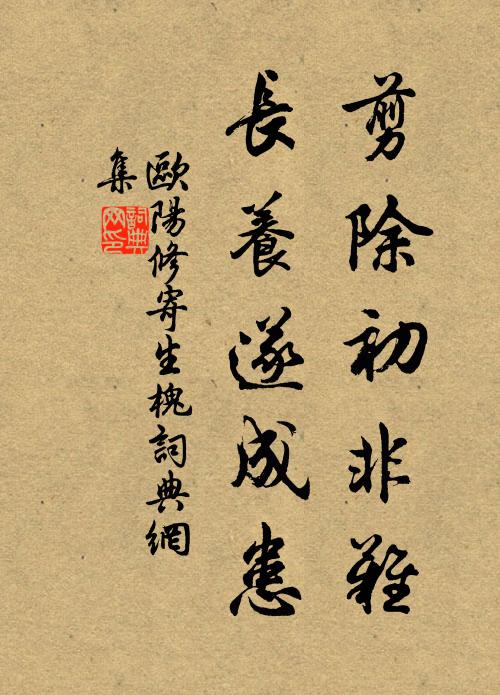 剪除初非難
長養遂成患
歐陽修寄生槐詞典網
集
詞典
网印